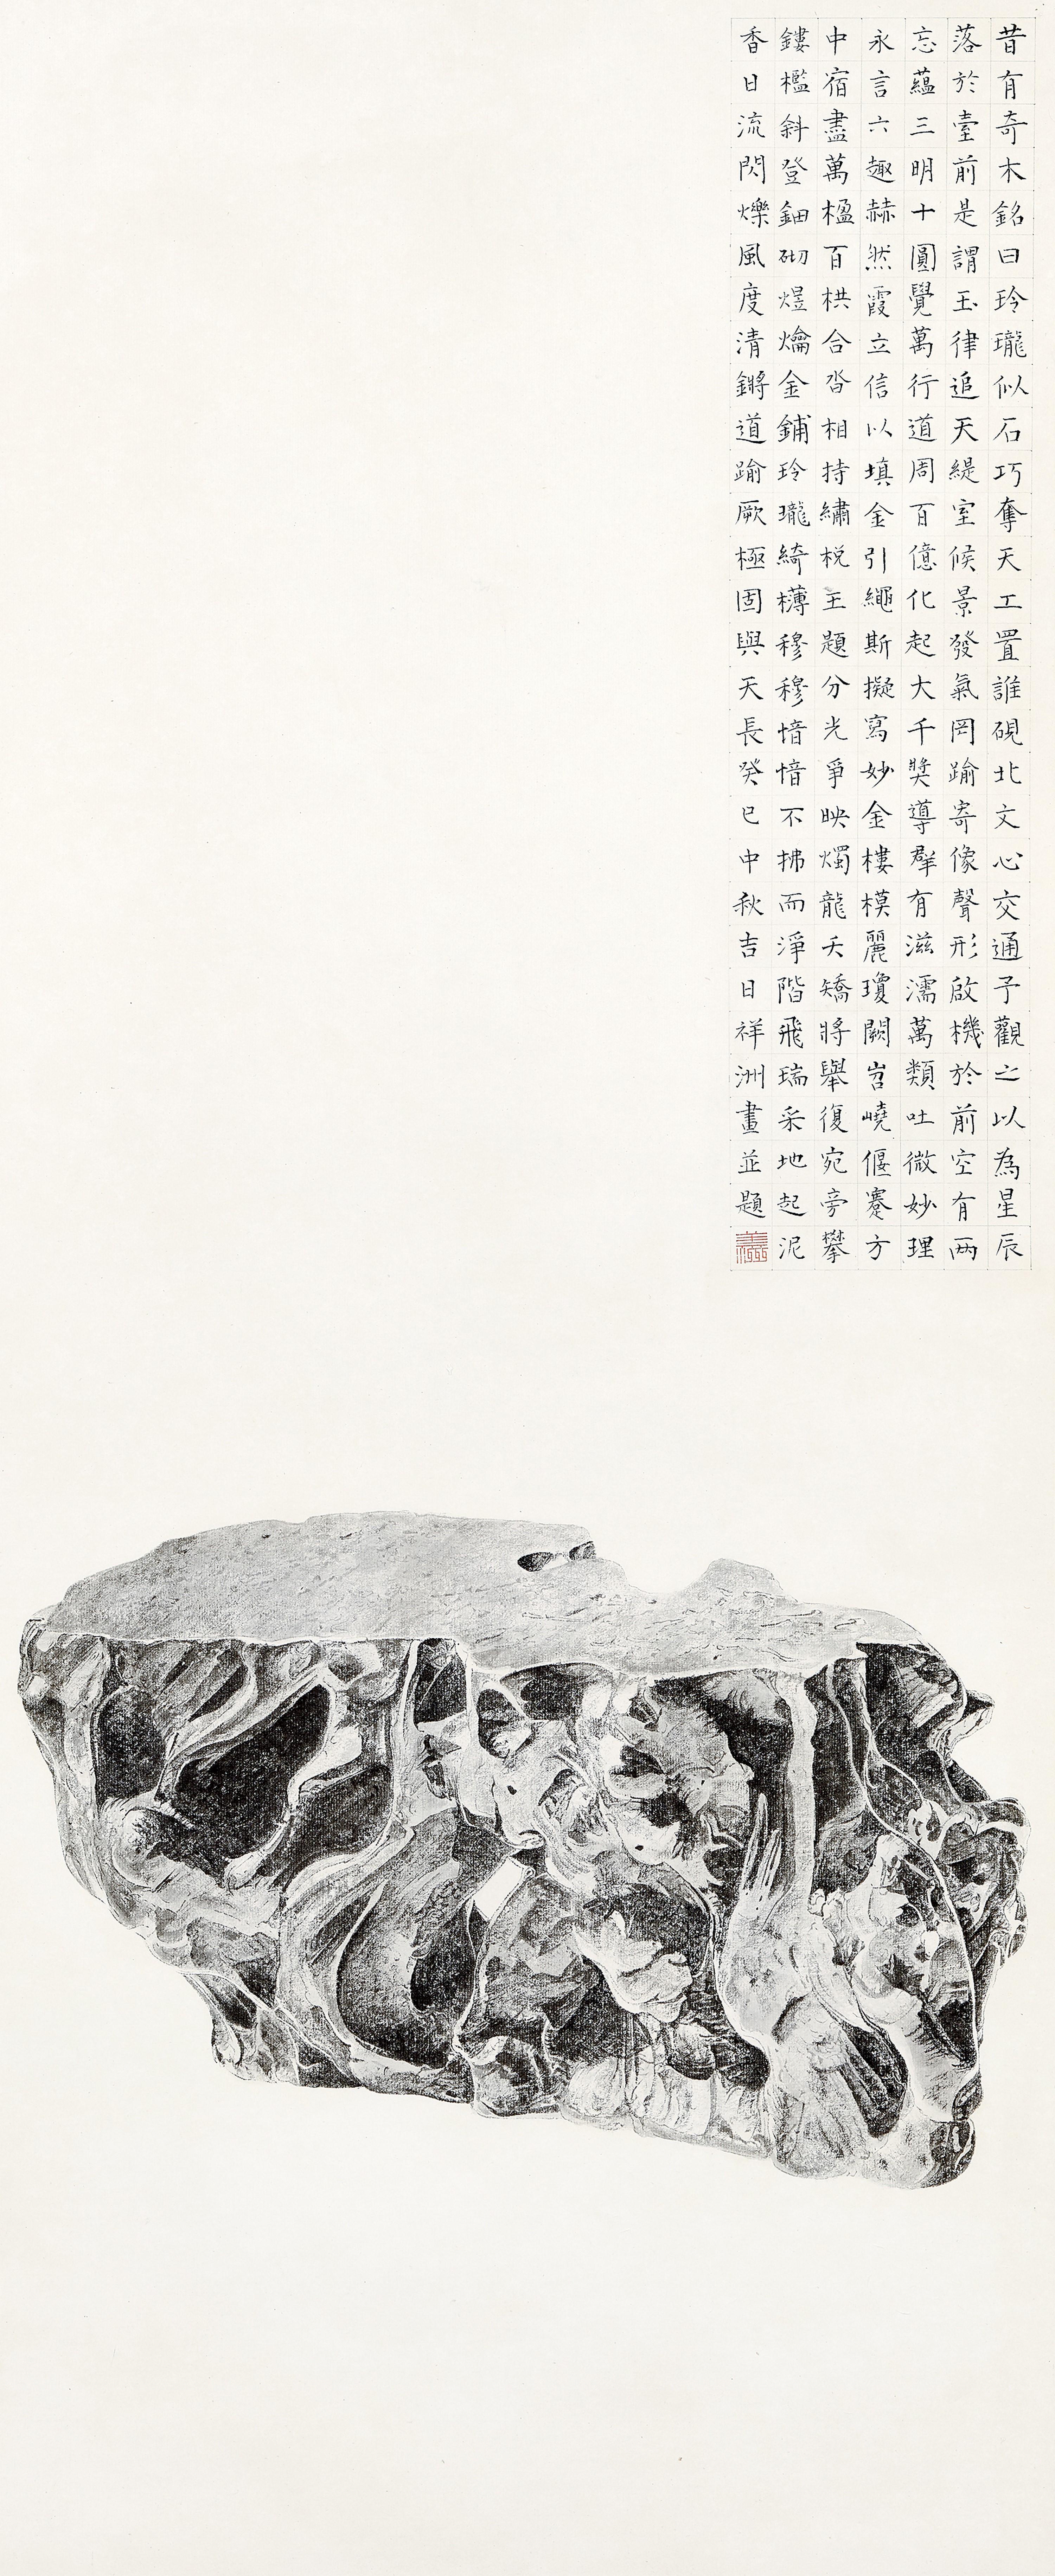 昔有奇木銘曰玲瓏似石巧奪天工置誰硯北文心交通予觀之以為星辰
落於臺前是謂玉律追天緹室候景發氣罔踰寄像聲形啟機於前空有兩
忘蘊三明十圓覺萬行道周百億化起大千奬導群有滋濡萬類吐微妙理
永言六趣赫然霞立信以填金引繩斯擬寫妙金樓模麗瓊闕岧嶢偃蹇方
中宿盡萬楹百栱合沓相持繡棁玉題分光爭映燭龍夭矯將舉復宛旁攀
鏤檻斜登鈿砌煜爚金鋪玲瓏綺欂穆穆愔愔不拂而淨階飛瑞采地起泥
香日流閃爍風度清鏘道踰厥極固與天長癸巳中秋吉日祥洲畫並題